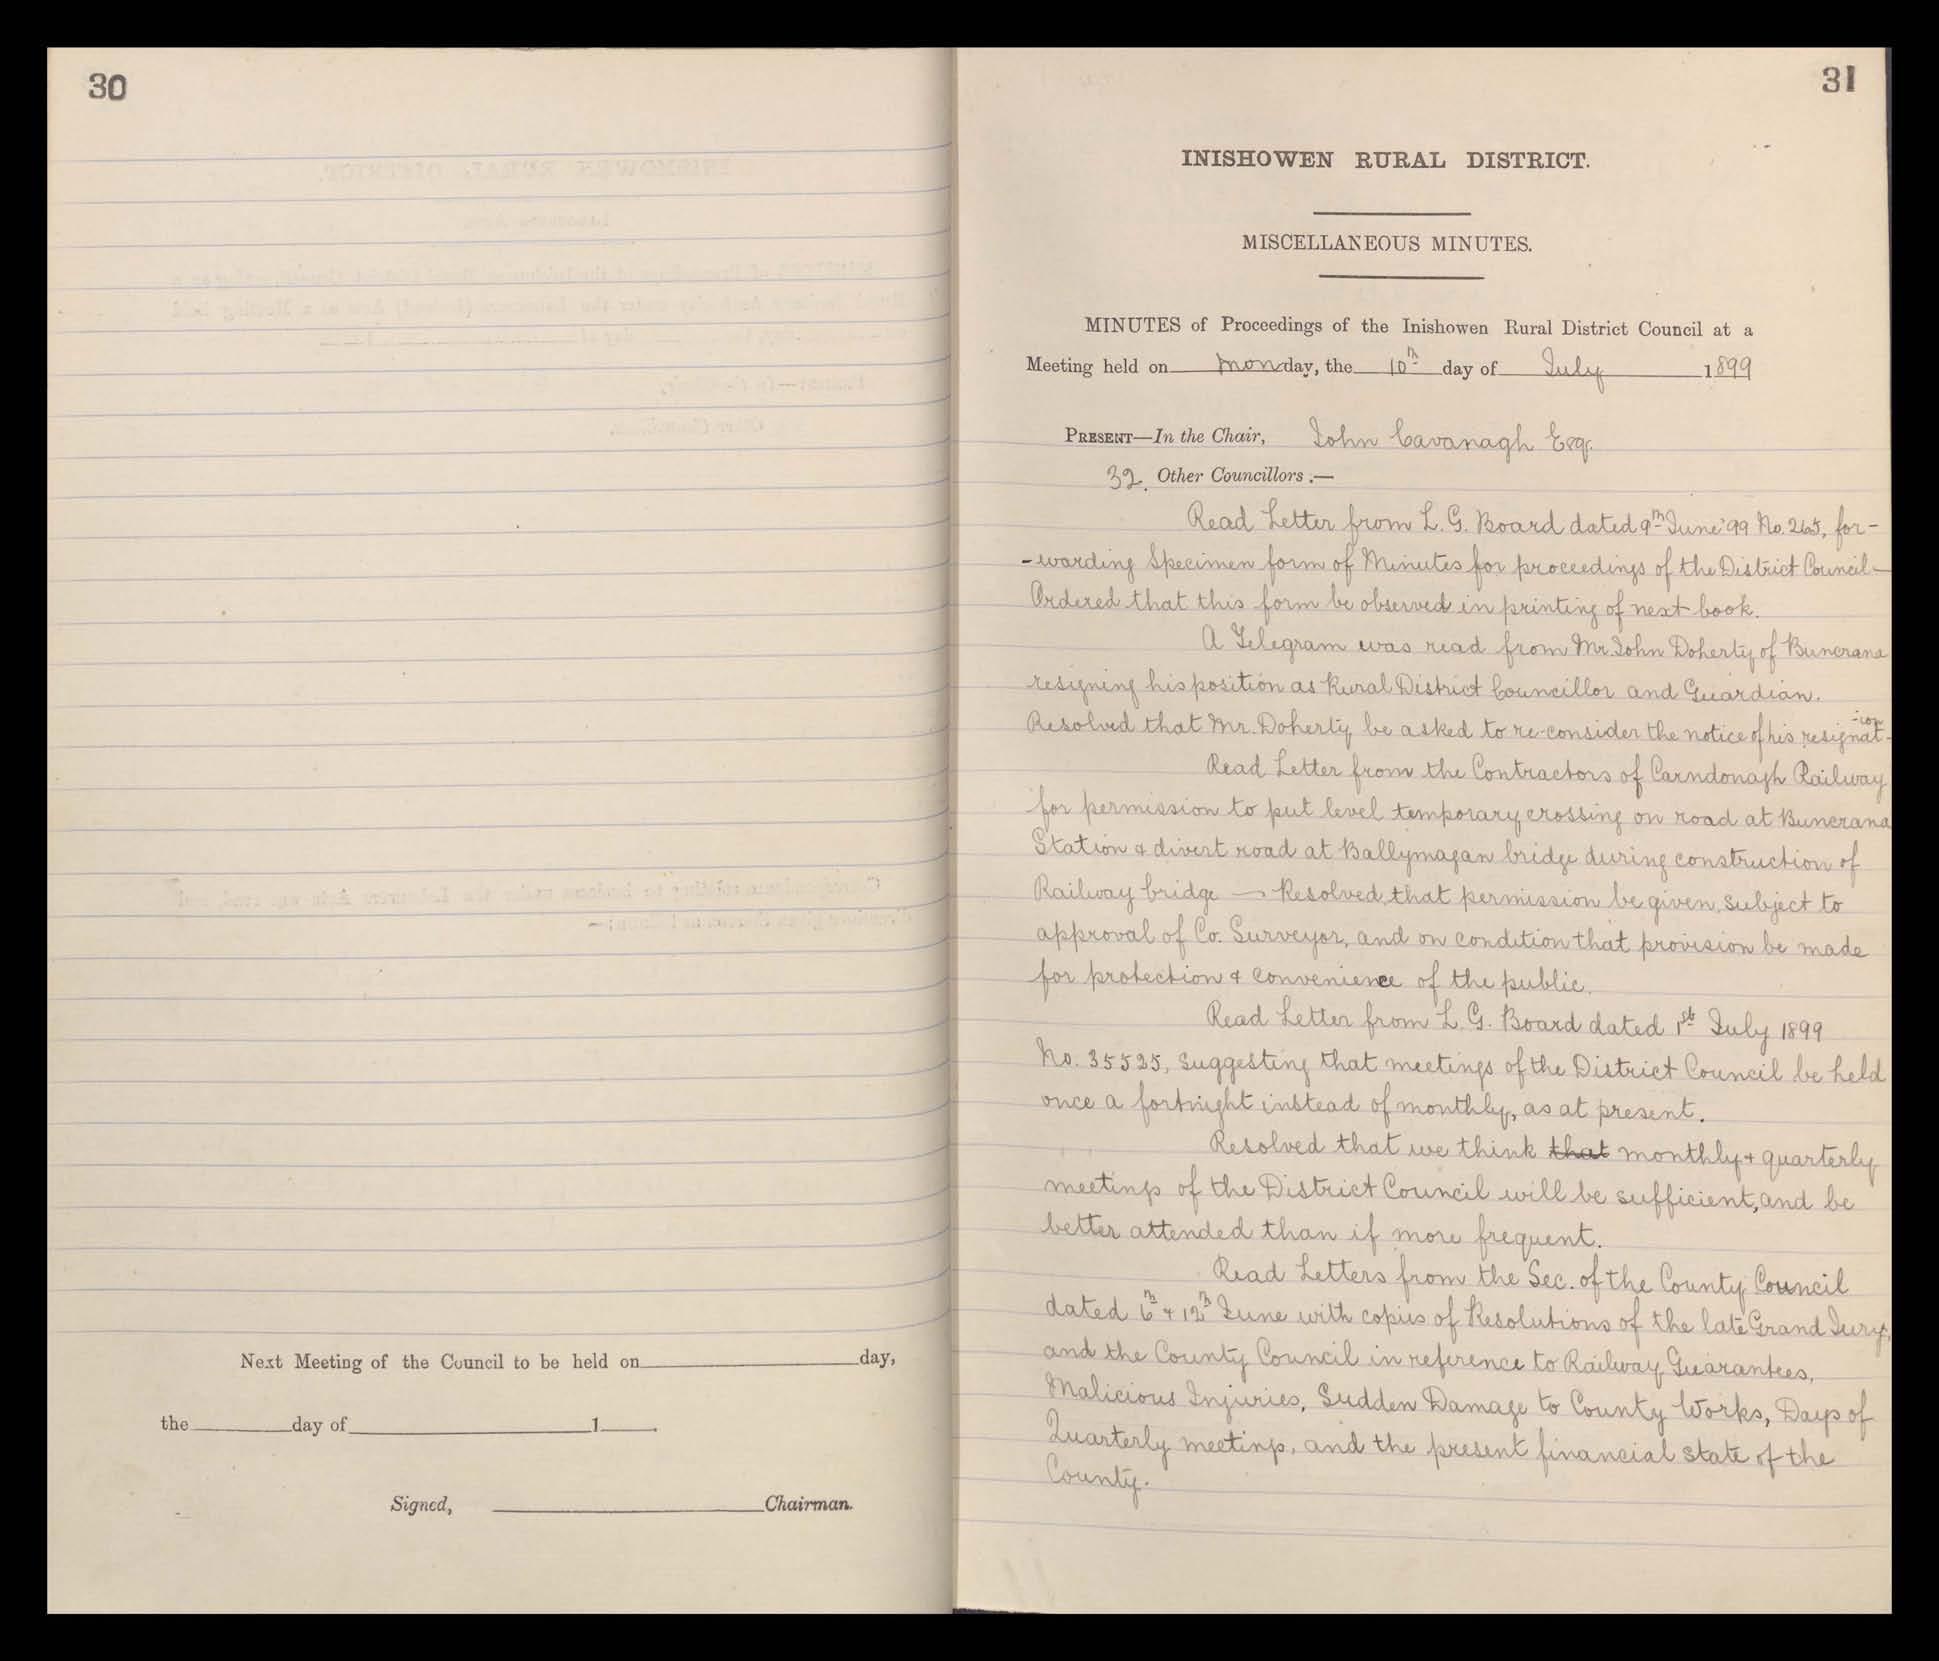 30
Next Meeting of the Council to be held on day,
the day of 1 .
Signed, Chairman.
31
INISHOWEN RURAL DISTRICT.
MISCELLANEOUS MINUTES.
MINUTES of Proceedings of the Inishowen Rural District Council at a
Meeting held on Monday, the 10th day of July 1899
PRESENT—In the Chair, John Cavanagh Esq.
32. Other Councillors :—
Read Letter from L. G. Board dated 9th June '99 No. 265, for-
-warding Specimen form of Minutes for proceedings of the District Council—
Ordered that this form be observed in printing of next book.
A Telegram was read from Mr. John Doherty of Buncrana
resigning his position as Rural District Councillor and Guardian.
Resolved that Mr. Doherty be asked to re-consider the notice of his resignat-
-ion
Read Letter from the Contractors of Carndonagh Railway
for permission to put level temporary crossing on road at Buncrana
Station & divert road at Ballymagan bridge during construction of
Railway bridge — Resolved, that permission be given, subject to
approval of Co. Surveyor, and on condition that provision be made
for protection & convenience of the public.
Read Letter from L. G. Board dated 1st July 1899
No. 35535, suggesting that meetings of the District Council be held
once a fortnight instead of monthly, as at present.
Resolved that we think that monthly & quarterly
meetings of the District Council will be sufficient, and be
better attended than if more frequent.
Read Letters from the Sec. of the County Council
dated 6th & 12th June with copies of Resolutions of the late Grand Jury,
and the County Council in reference to Railway Guarantees,
Malicious Injuries, Sudden Damage to County Works, Days of
Quarterly meetings, and the present financial state of the
County.